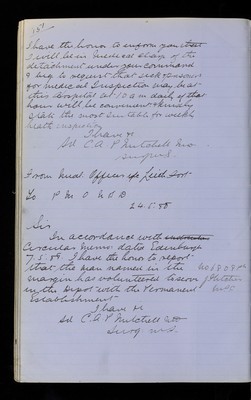 I have the honor to inform you that
I will be in medical charge of the
detachment under your command
& beg to request that sick & casuals
for medical Inspection may be at
this Hospital at 10 a.m. daily if that
hour will be convenient. Kindly
state the most suitable for weekly
health inspection
I have &c
Sd C A P Mitchell MB
Surg M.S.
From Med Officer i/c Leith Fort
To P M O N B D
24.5.88
Sir
In accordance with
Circular Memo dated Edinburgh
7.5.88 I have the honor to report
that the man named in the
margin has volunteered to serve
in the Depot with the Permanent
Establishment
I have &c
Sd C A P Mitchell MB
Surg M.S.